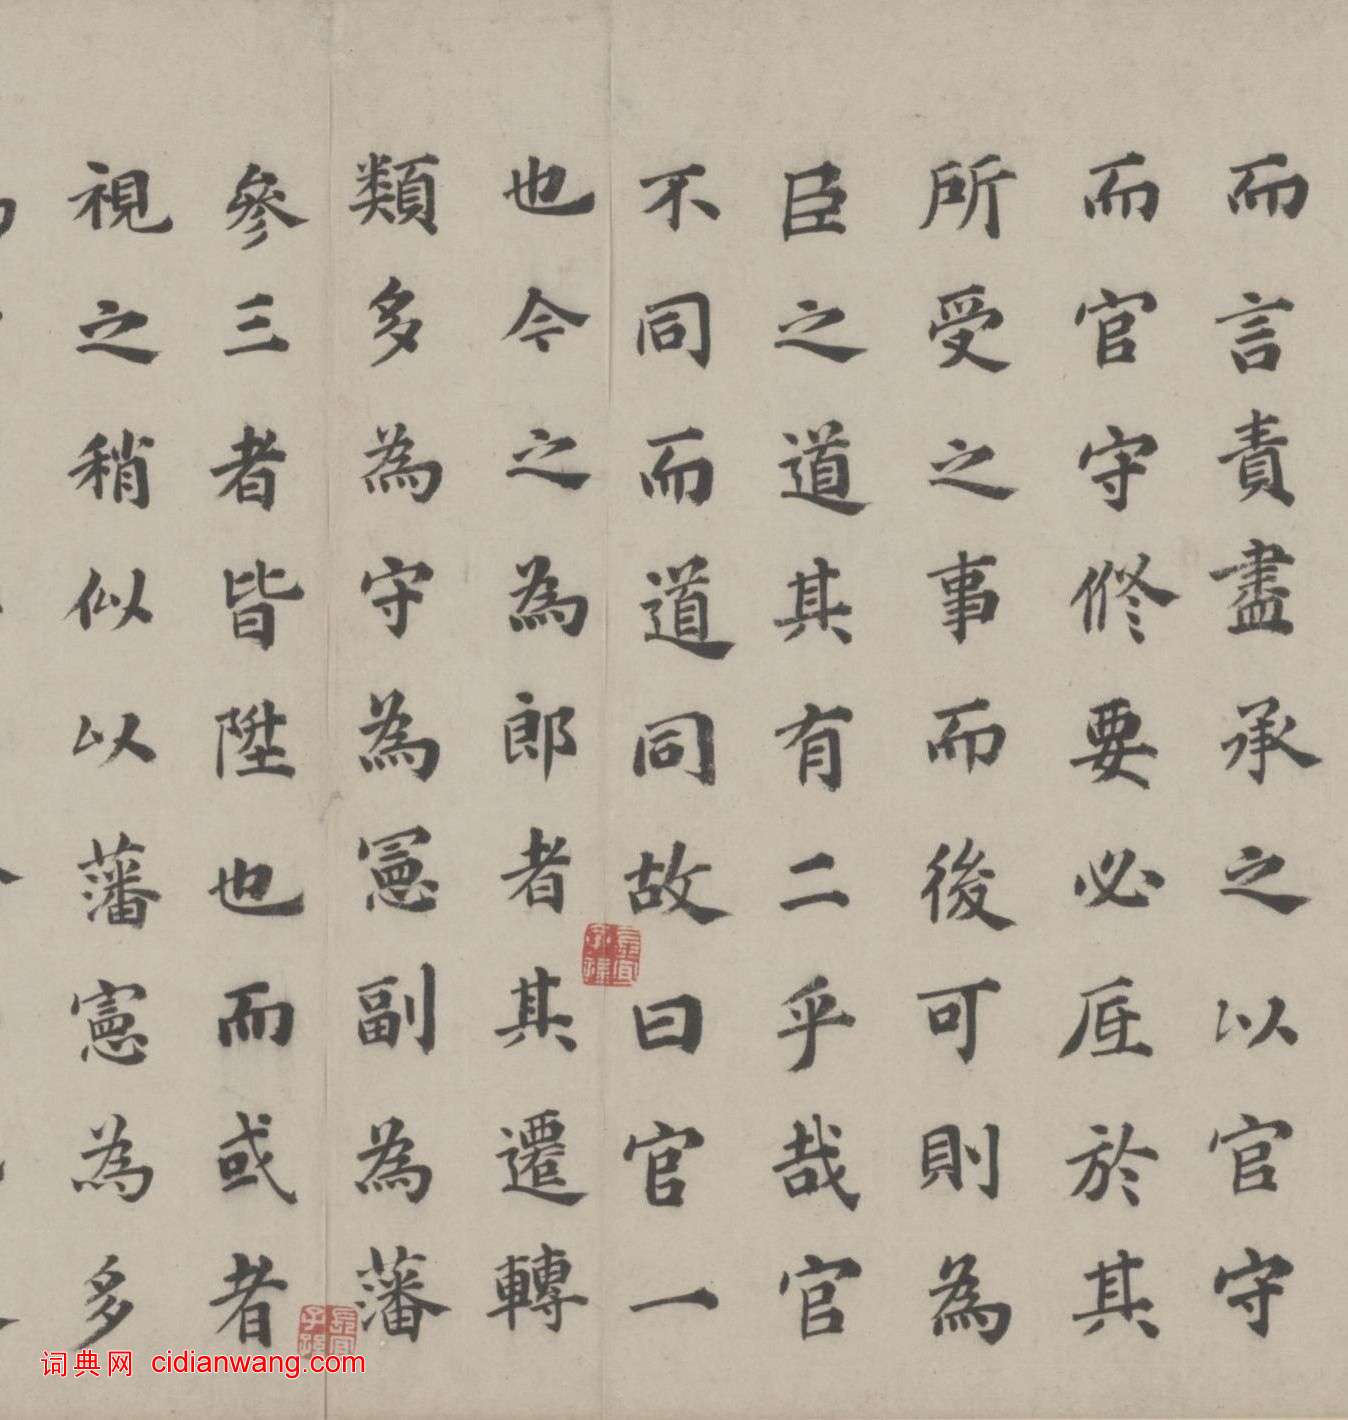 而言責盡承之以官守
而官守修要必底於其
所受之事而後可則為
臣之道其有二乎哉官
不同而道同故曰官一
也今之為郎者其遷轉
類多為守為憲副為藩
參三者皆陞也而或者
視之稍似以藩憲為多
词典网 cidianwang.com